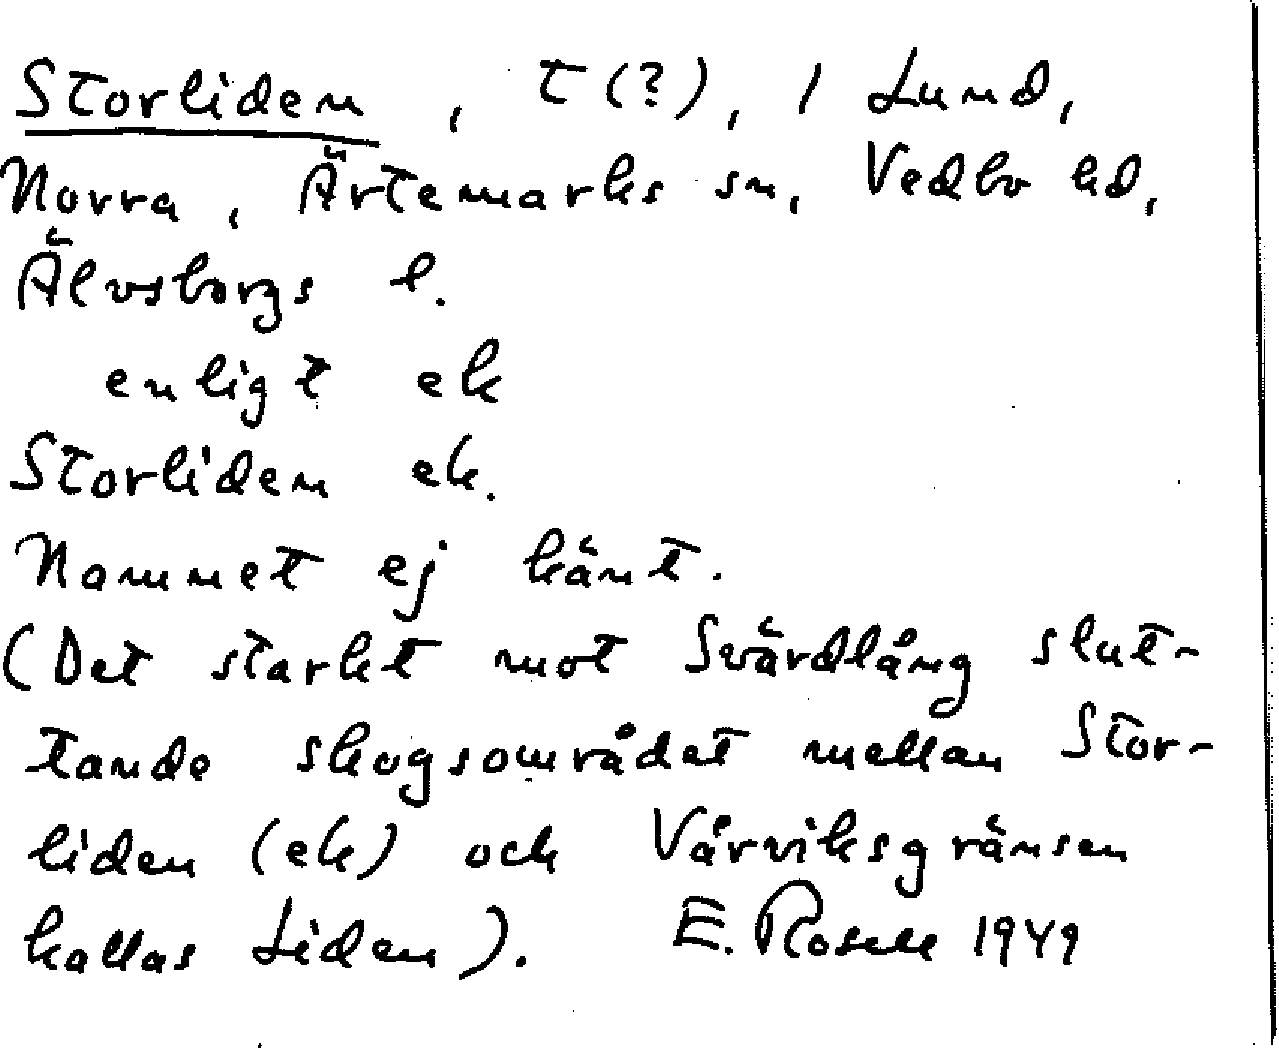 Storliden, t (?), 1 Lund,
Norra, Ärtemarks sn, Vedbo hd,
Älvsborgs l.
enligt ek
Storliden ek.
Namnet ej känt.
(Det starkt mot Svärdlång slut-
tande skogsområdet mellan Stor-
liden (ek) och Vårviksgränsen
kallas Liden). E. Rosell 1949